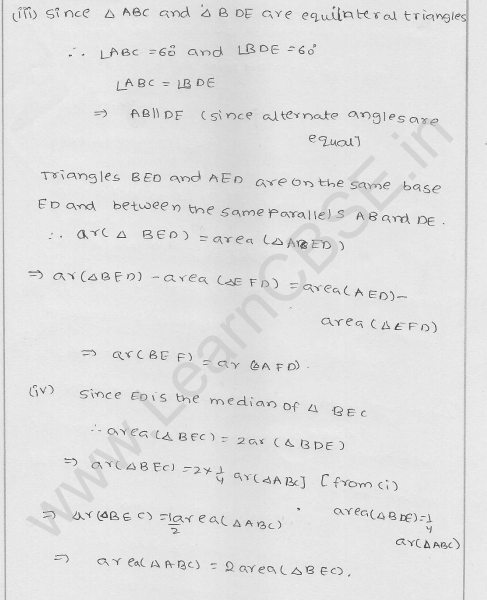 (iii) Since △ ABC and △ BDE are equilateral triangles
∴ ∠ABC = 60° and ∠BDE = 60°
∠ABC = ∠BDE
⇒ AB||DE (since alternate angles are
equal]
Triangles BED and AED are on the same base
ED and between the same parallels AB and DE.
∴ ar(△ BED) = area (△AED)
⇒ ar(△BED) - area (△EFD) = area(AED) -
area (△EFD)
⇒ ar(BEF) = ar (△AFD).
(iv) Since ED is the median of △ BEC
∴ area (△BEC) = 2ar (△BDE)
⇒ ar(△BEC) = 2 × 1/4 ar(△ABC] [from (i)
area(△BDE) = 1/4
ar(△ABC)
⇒ ar(△BEC) = 1/2 area(△ABC)
⇒ area(△ABC) = 2area(△BEC).
www.LearnCBSE.in